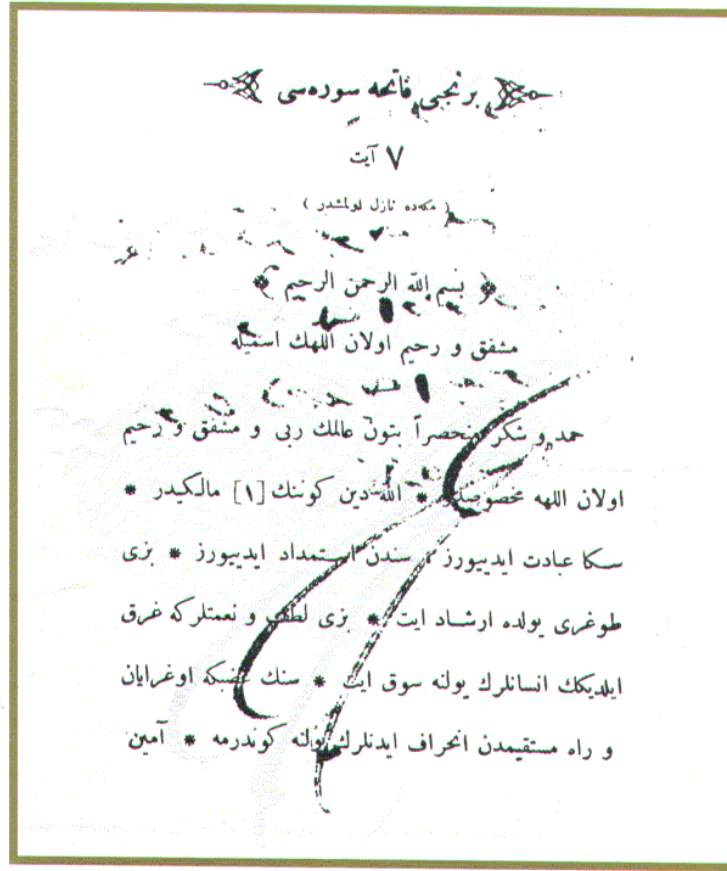 برنجی فاتحه سوره‌سی
٧ آیت
( مکه‌ده نازل اولمشدر )
﴿ بسم الله الرحمن الرحیم ﴾
مشفق و رحیم اولان اللهك اسمیله
حمد و شکر منحصراً بتون عالمك ربی و مشفق و رحیم
اولان اللهه مخصوصدر * الله دین کوننك [١] مالکیدر *
سکا عبادت ایدییورز ، سندن استمداد ایدییورز * بزی
طوغری یولده ارشاد ایت * بزی لطف و نعمتلرکه غرق
ایلدیکك انسانلرك یولنه سوق ایت * سنك غضبکه اوغرایان
و راه مستقیمدن انحراف ایدنلرك یولنه کوندرمه * آمین